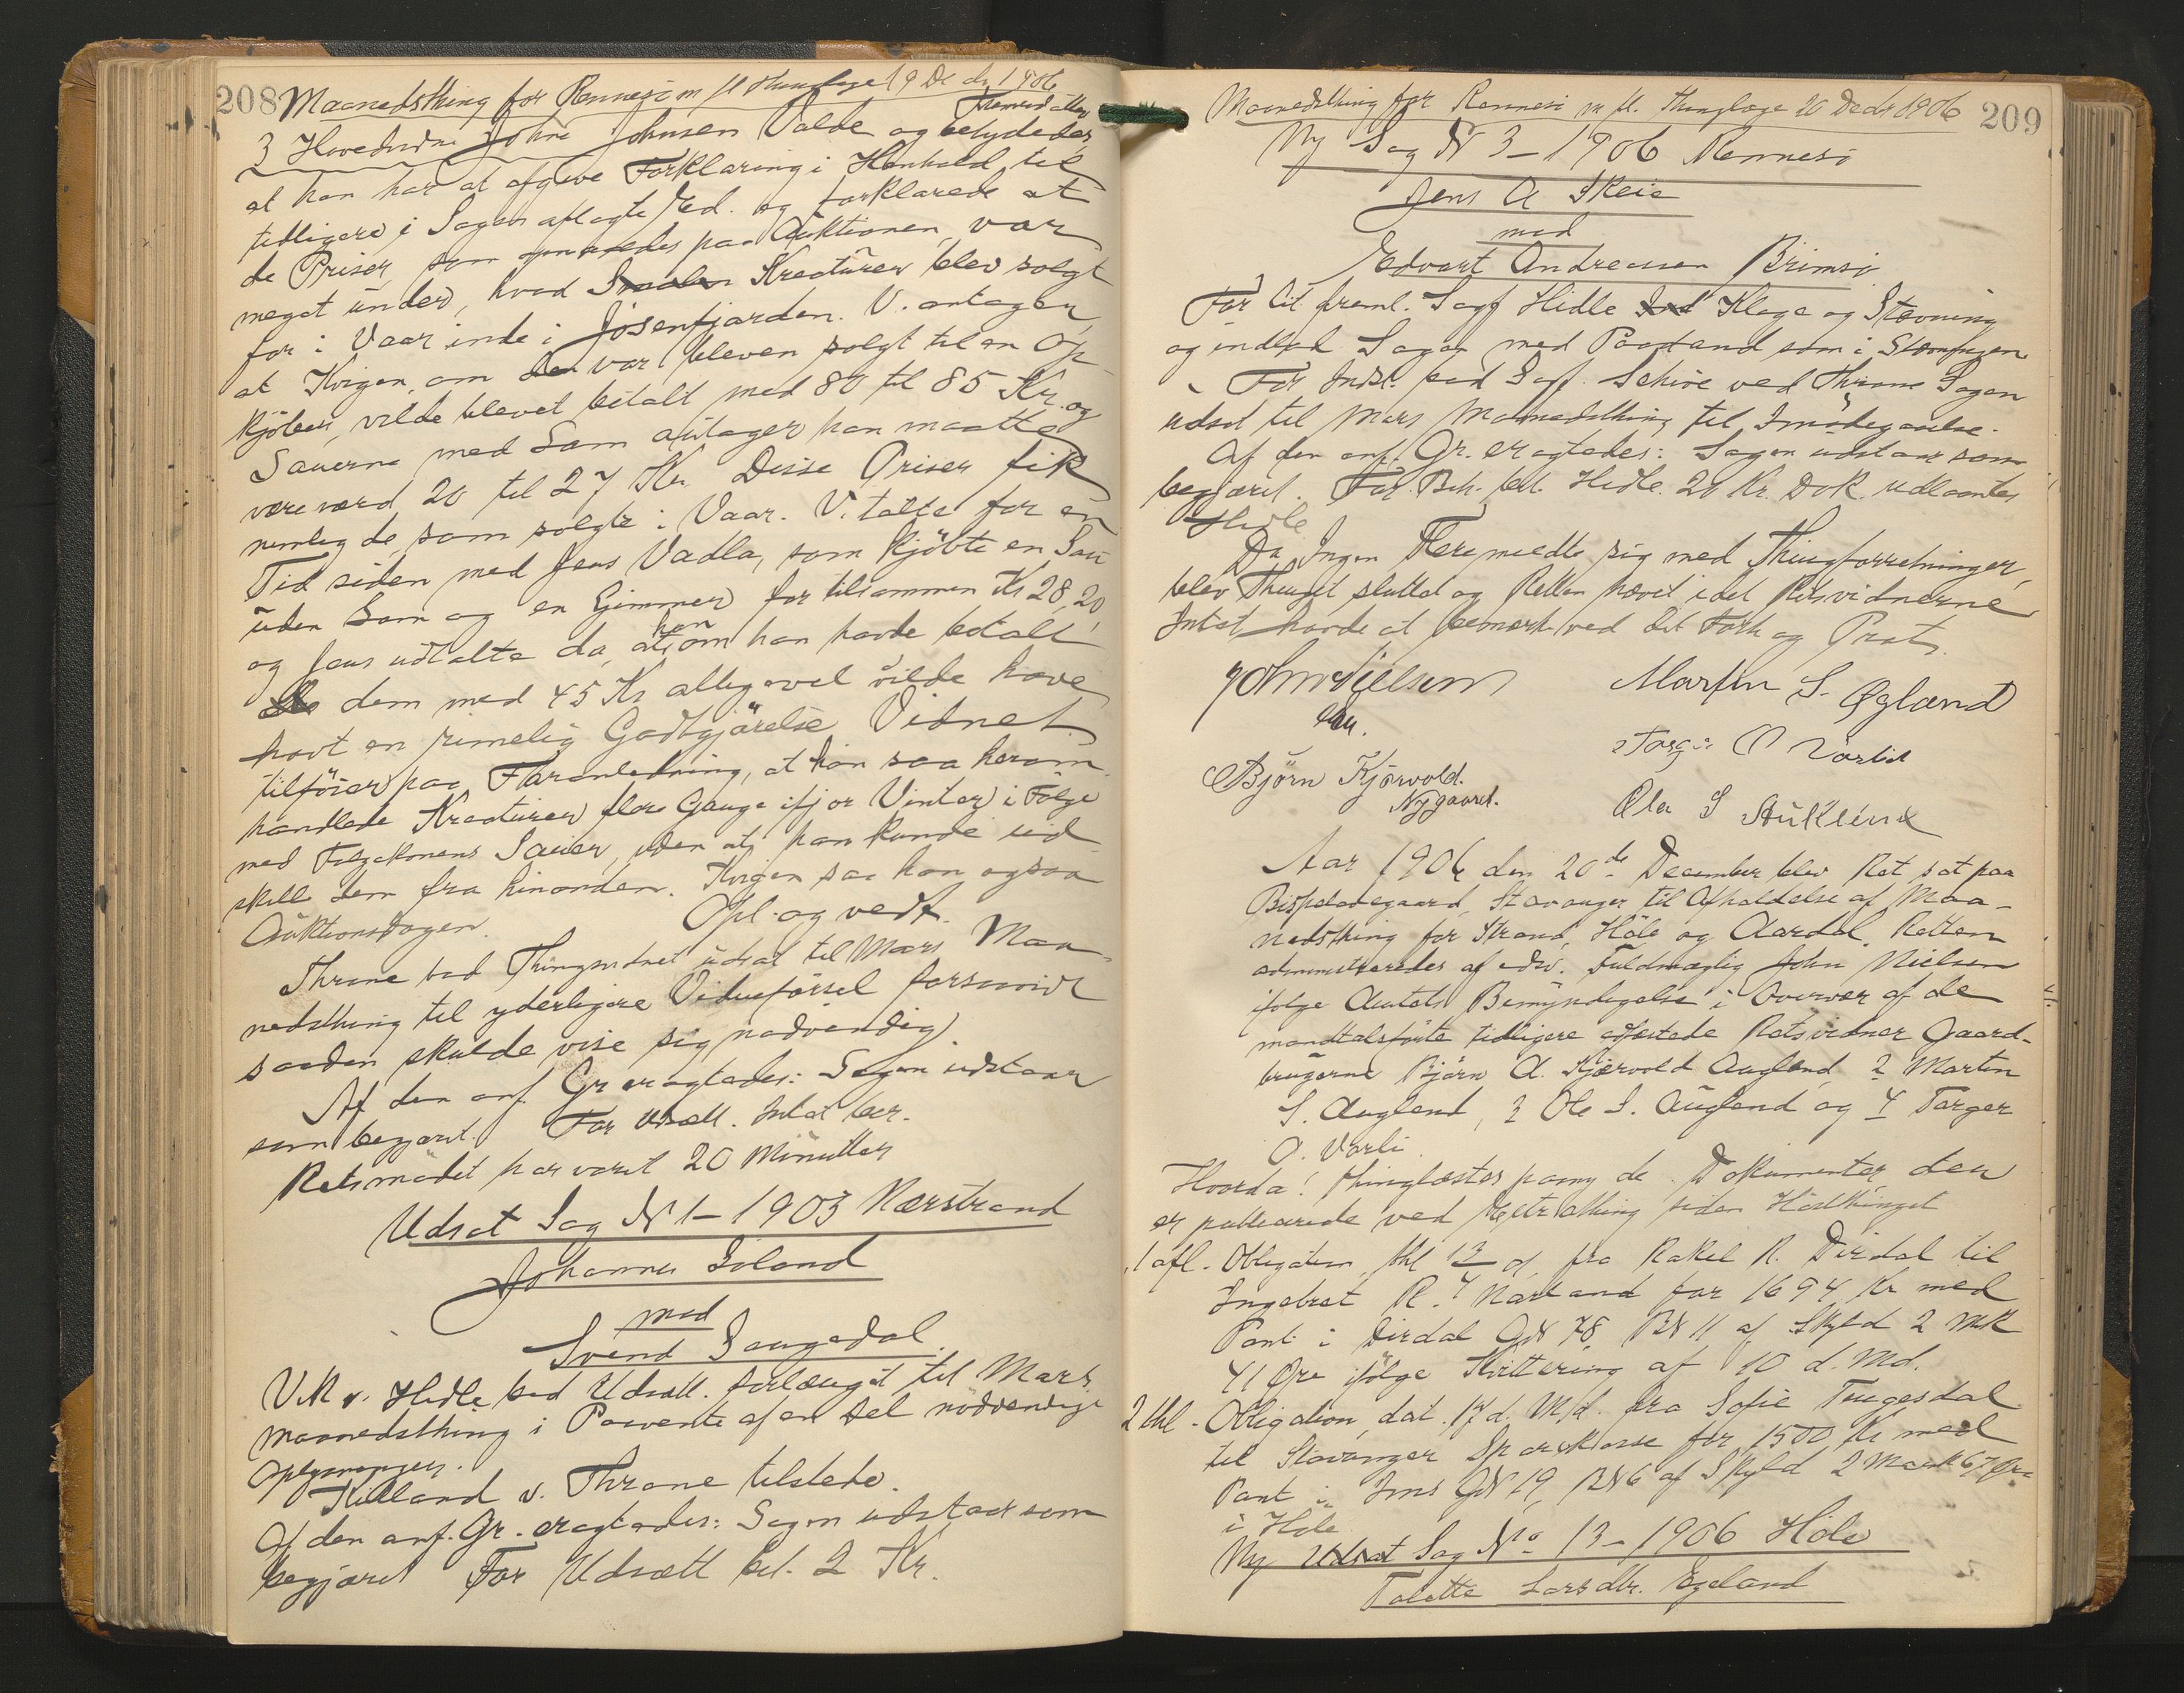 208 Maanedsthing for Rennesö m fl Thinglage 19 De ch 1906
Fremstilles
3 Hovedvidne Johne Johnsen Valde og betydedes
at han har at afgive Forklaring i Henhold til
tidligere i Sagen aflagte Ed. og forklarede at
de Priser som opnaaedes paa Auktionen, var
meget under, hvad Kreaturer blev solgt
for i Vaar inde i Jösenfjorden. V. antager
at Kvigen, om den var bleven solgt til en Op-
kjöber, vilde blevet betalt med 80 til 85 Kr. og
Sauerne med Lam antager han maatte
være værd 20 til 27 Kr. Disse Priser fik
nemlig de som solgte i Vaar. V. talte for en
Tid siden med Jens Vadla, som kjöbte en Sau
uden Lam og en Gimmer for tilsammen Kr 28,20,
og Jens udtalte da, at han om han havde betalt
dem med 45 Kr alligevel vilde have
havt en rimelig Godtgjörelse. Vidnet
tilföier paa Foranledning, at han saa herom-
handlede Kreaturer flere Gange ifjor Vinter i Fölge
med Folgekonens Sauer, uden at han kunde ad-
skille dem fra hinanden. Kvigen saa han ogsaa
Auktionsdagen. Opl. og vedt.
Thrane bad Thingsvidnet udsat til Mars Maa-
nedsthing til yderligere Vidneförsel forsaavidt
saadan skulde vise sig nødvendig.
Af den anf. Gr eragtedes: Sagen udstaar
som begjæret. For Udsætt. Intet ber.
Retsmödet har varet 20 Minutter
Udsat Sag N 1 - 1903 Nærstrand
Johannes Eiland
mod
Svend Saugedal.
V.K. v. Hidle bad Udsætt. forlænget til Mars
maanedsthing i Paavente af en Del nödvendige
Oplysninger.
Kielland v. Thrane tilstede.
Af den anf. Gr. eragtedes: Sagen udstaar som
begjæret For Udsætt bet. 2 Kr.
Maanedsthing for Rennesö m fl. Thinglage 20 Decbr 1906 209
Ny Sag N 3 - 1906 Rennesö
Jens A Skeie
mod
Edvart Andreassen Brimsö
For Cit freml. Sagf Hidle Klage og Stævning
og indlod Sagen med Paastand som i Stævningen
For Indst. bad Sagf. Schiöe ved Thrane Sagen
udsat til Mars Maanedsthing til Imödegaaelse.
Af den anf. Gr. eragtedes: Sagen udstaar som
begjæret. For Beh. bet. Hidle 20 Kr. Dok udlaantes
Hidle
Da Ingen Flere meldte sig med Thingforretninger,
blev Thinget sluttet og Retten hævet idet Retsvidnerne
Intet havde at bemærke ved det Forh og Prot.
John Nielsen Martin S. Øgland
cst.
Torger O Varlid
Björn Kjörvold.
Nygaard.
Ola S Auklend
Aar 1906 den 20de December blev Ret sat paa
Bispeladegaard, Stavanger til Afholdelse af Maa-
nedsthing for Strand, Höle og Aardal. Retten
administreredes af edsv. Fuldmægtig John Nielsen
ifölge Amtets Bemyndigelse i Overvær af de
mandtalsförte tidligere edfæstede Retsvidner Gaard-
brugerne Björn A. Kjærvold Augland, 2 Martin
S. Augland, 3 Ole S. Augland og 4 Torger
O. Varli.
Hvorda! thinglæstes paany de Dokumenter, der
er publicerede ved Extrathing siden Höstthinget
1 afl. Obligation thl 13 fra Rakel R. Dirdal til
Ingebret R. Narland for 1694 Kr med
Pant i Dirdal GN 78, BN 11 af Skyld 2 Mk
41 Øre ifölge Kvittering af 10 d. Md.
2 thl. Obligation, dat. 17 d. Md. fra Sofie Tengesdal
til Stavanger Sparekasse for 1500 Kr med
Pant i Ims GN 19, BN 6 af Skyld 2 Mark 67 Øre
i Höle
Ny Udsat Sag No 13 - 1906 Höle
Talette Larsdtr. Egeland